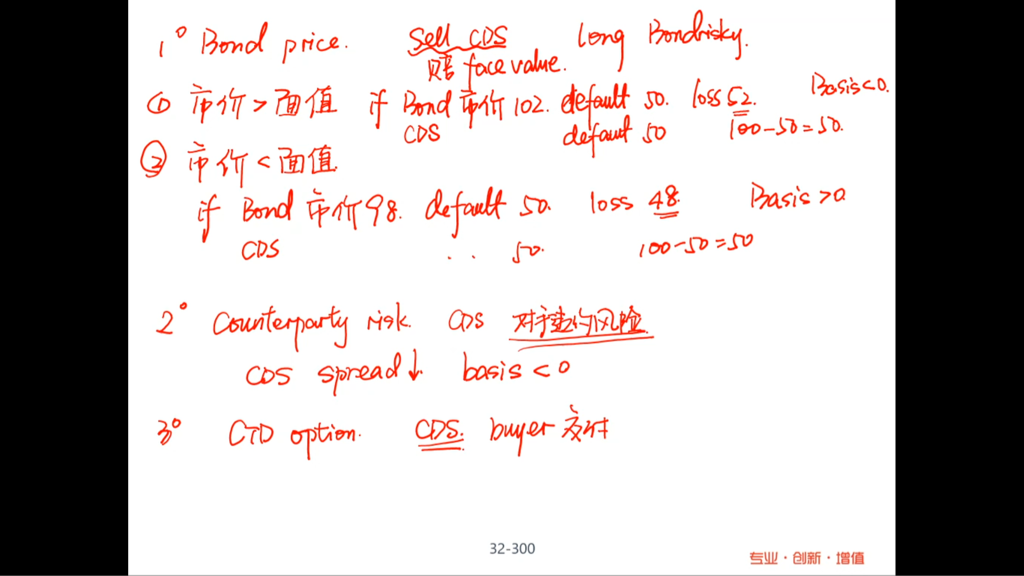 1° Bond price. Sell CDS long Bond risky.
赔 face value.
① 市价 > 面值 if Bond 市价 102. default 50. loss 52. Basis<0.
CDS default 50 100-50=50.
② 市价 < 面值
if Bond 市价 98. default 50. loss 48. Basis>0
CDS .. 50. 100-50=50
2° Counterparty risk. CDS 对手的风险
CDS spread↓. basis < 0
3° CTD option. CDS. buyer 交付
32-300
专业·创新·增值